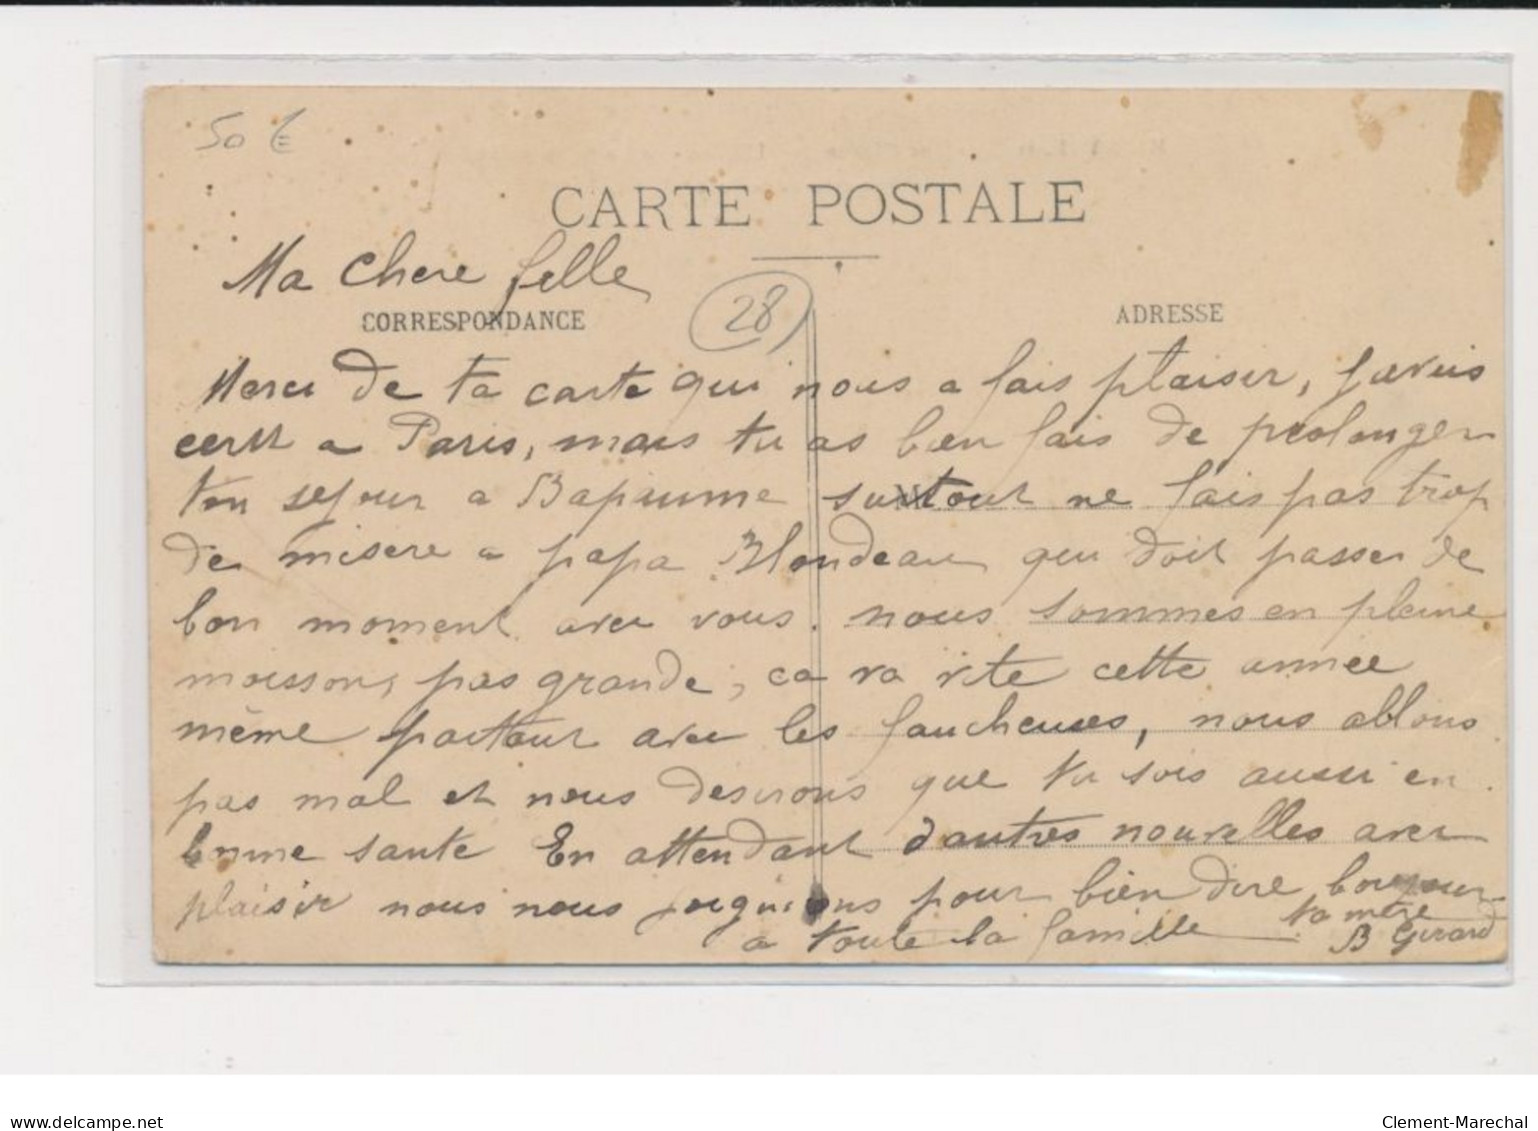 50 €
CARTE POSTALE
Ma chere fille
28
CORRESPONDANCE
ADRESSE
Merci de ta carte qui nous a fais plaisir, j'avais
ecrit a Paris, mais tu as bien fais de prolonger
ton sejour a Bapaume surtout ne fais pas trop
de misere a papa Blondeau qui doit passer de
bon moment avec vous. nous sommes en pleine
moisson, pas grande, ca va vite cette annee
même partout avec les faucheuses, nous allons
pas mal et nous desirons que tu sois aussi en
bonne sante En attendant d'autres nouvelles avec
plaisir nous nous joignions pour bien dire bonjour
a toute la famille ta mère
B Girard
www.delcampe.net
Clement-Marechal